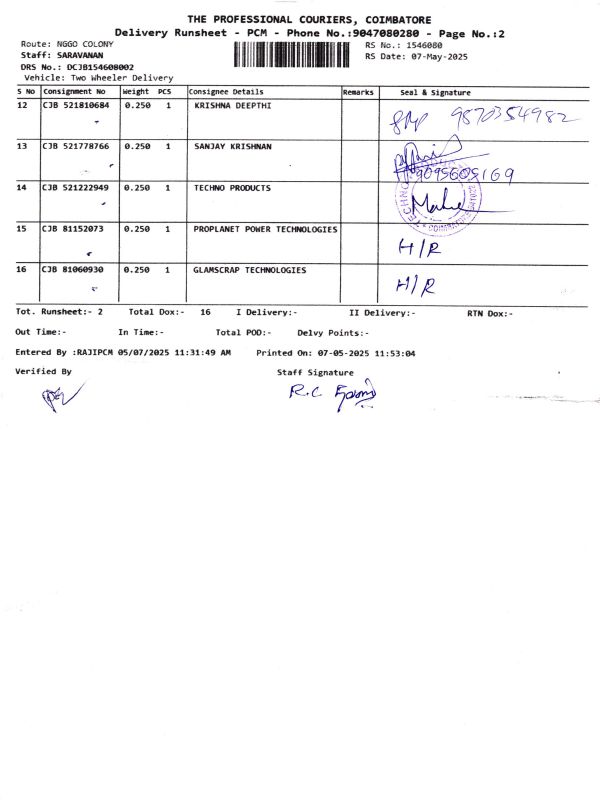 THE PROFESSIONAL COURIERS, COIMBATORE
Delivery Runsheet - PCM - Phone No.:9047080280 - Page No.:2
Route: NGGO COLONY
RS No.: 1546080
Staff: SARAVANAN
RS Date: 07-May-2025
DRS No.: DCJB154608002
Vehicle: Two Wheeler Delivery
S No Consignment No Weight PCS Consignee Details Remarks Seal & Signature
12 CJB 521810684 0.250 1 KRISHNA DEEPTHI 9870354982
13 CJB 521778766 0.250 1 SANJAY KRISHNAN 9095605169
14 CJB 521222949 0.250 1 TECHNO PRODUCTS
15 CJB 81152073 0.250 1 PROPLANET POWER TECHNOLOGIES H/R
16 CJB 81060930 0.250 1 GLAMSCRAP TECHNOLOGIES H/R
Tot. Runsheet:- 2 Total Dox:- 16 I Delivery:- II Delivery:- RTN Dox:-
Out Time:- In Time:- Total POD:- Delvy Points:-
Entered By :RAJIPCM 05/07/2025 11:31:49 AM Printed On: 07-05-2025 11:53:04
Verified By Staff Signature
R.C